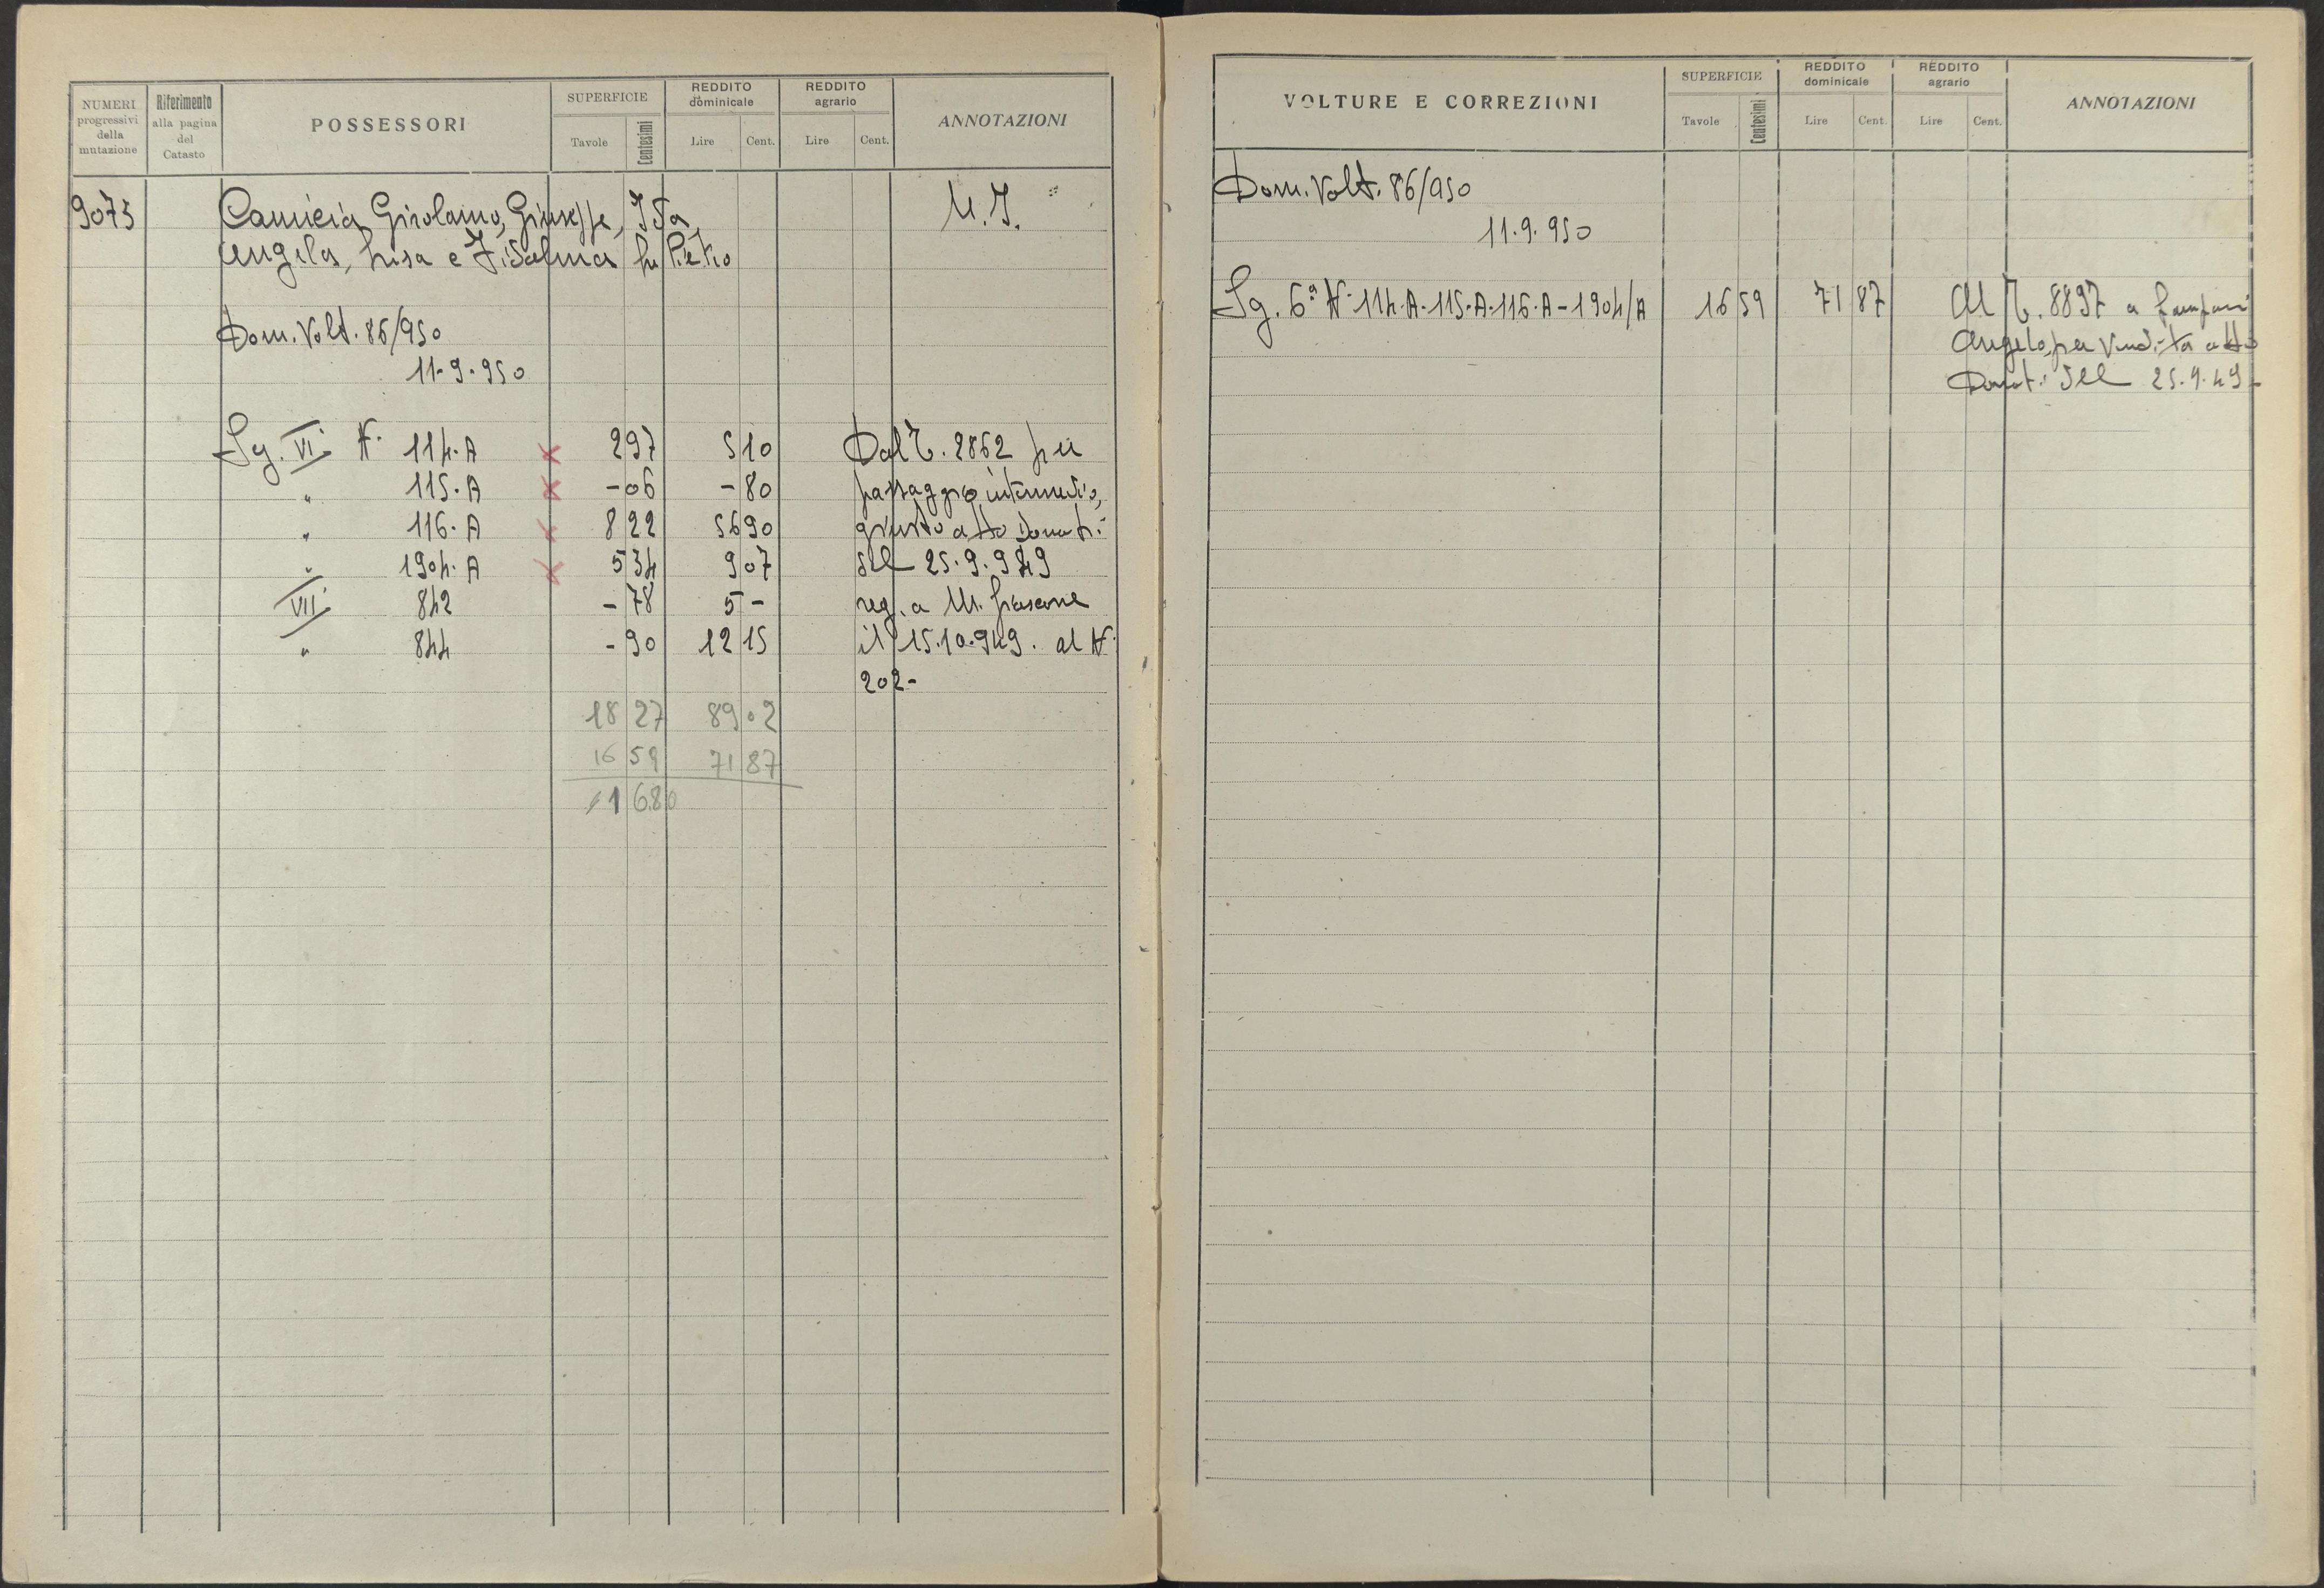 NUMERI progressivi della mutazione
Riferimento alla pagina del Catasto
POSSESSORI
SUPERFICIE
Tavole Centesimi
REDDITO dominicale
Lire Cent.
REDDITO agrario
Lire Cent.
ANNOTAZIONI
9073 Camicia Girolamo, Giuseppe, Ida, M.I.
Angela, Lisa e Fidalma fu Pietro
Dom. Volt. 86/950
11-9-950
Sg. VI N. 114.A × 2 97 5 10 Dal T. 2862 per
" 115.A × - 06 - 80 passaggio intermedio,
" 116.A × 8 22 56 90 giusto atto Donati
" 1904.A × 5 34 9 07 del 25.9.949
VII 842 - 78 5 - reg. a M.
" 844 - 90 12 15 il 15.10.949. al N.
202-
18 27 89 02
16 59 71 87
1 68 0
VOLTURE E CORREZIONI
SUPERFICIE
Tavole Centesimi
REDDITO dominicale
Lire Cent.
REDDITO agrario
Lire Cent.
ANNOTAZIONI
Dom. Volt. 86/950
11.9.950
Sg. 6ª N. 114.A-115.A-116.A-1904/A 16 59 71 87 Al T. 8897 a
Angelo, per vendita atto
Donati del 25.9.49-